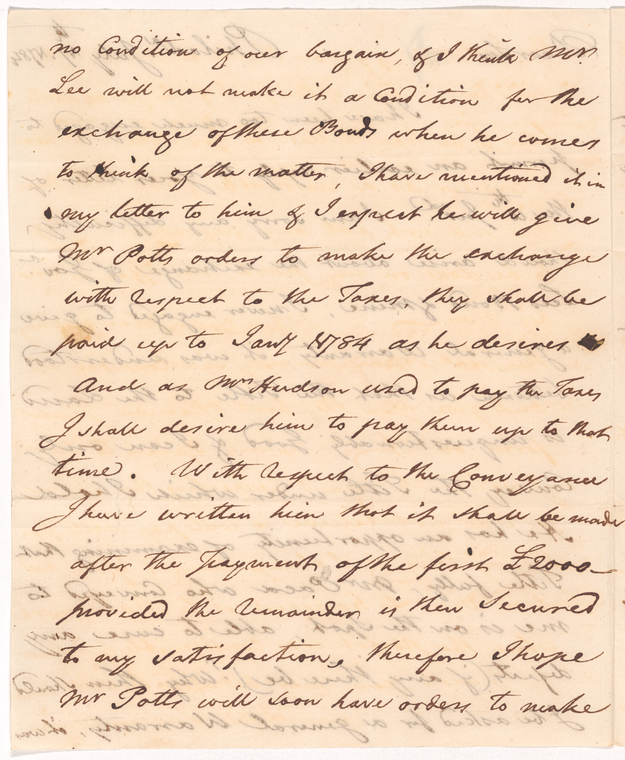 no Condition of our bargain, & I think Mr
Lee will not make it a Condition for the
exchange of these Bonds when he comes
to think of the matter, I have mentioned it in
my letter to him & I expect he will give
Mr Potts orders to make the exchange
with respect to the Taxes, they shall be
paid up to Jany 1784 as he desires
And as Mr Hudson used to pay the Taxes
I shall desire him to pay them up to that
time. With respect to the Conveyance
I have written him that it shall be made
after the payment of the first £2000—
provided the remainder is then Secured
to my satisfaction, therefore I hope
Mr Potts will soon have orders to make